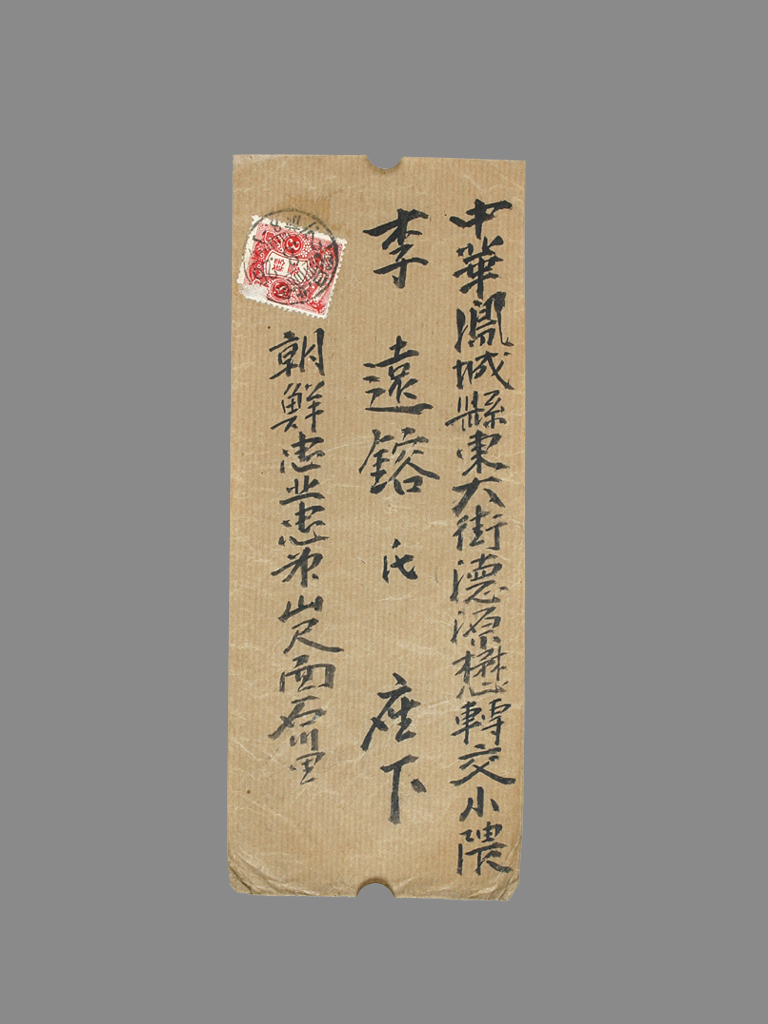 中華鳳城縣東大街德源懋轉交小隈
李遠鎔氏 座下
朝鮮忠北忠州山尺面石川里